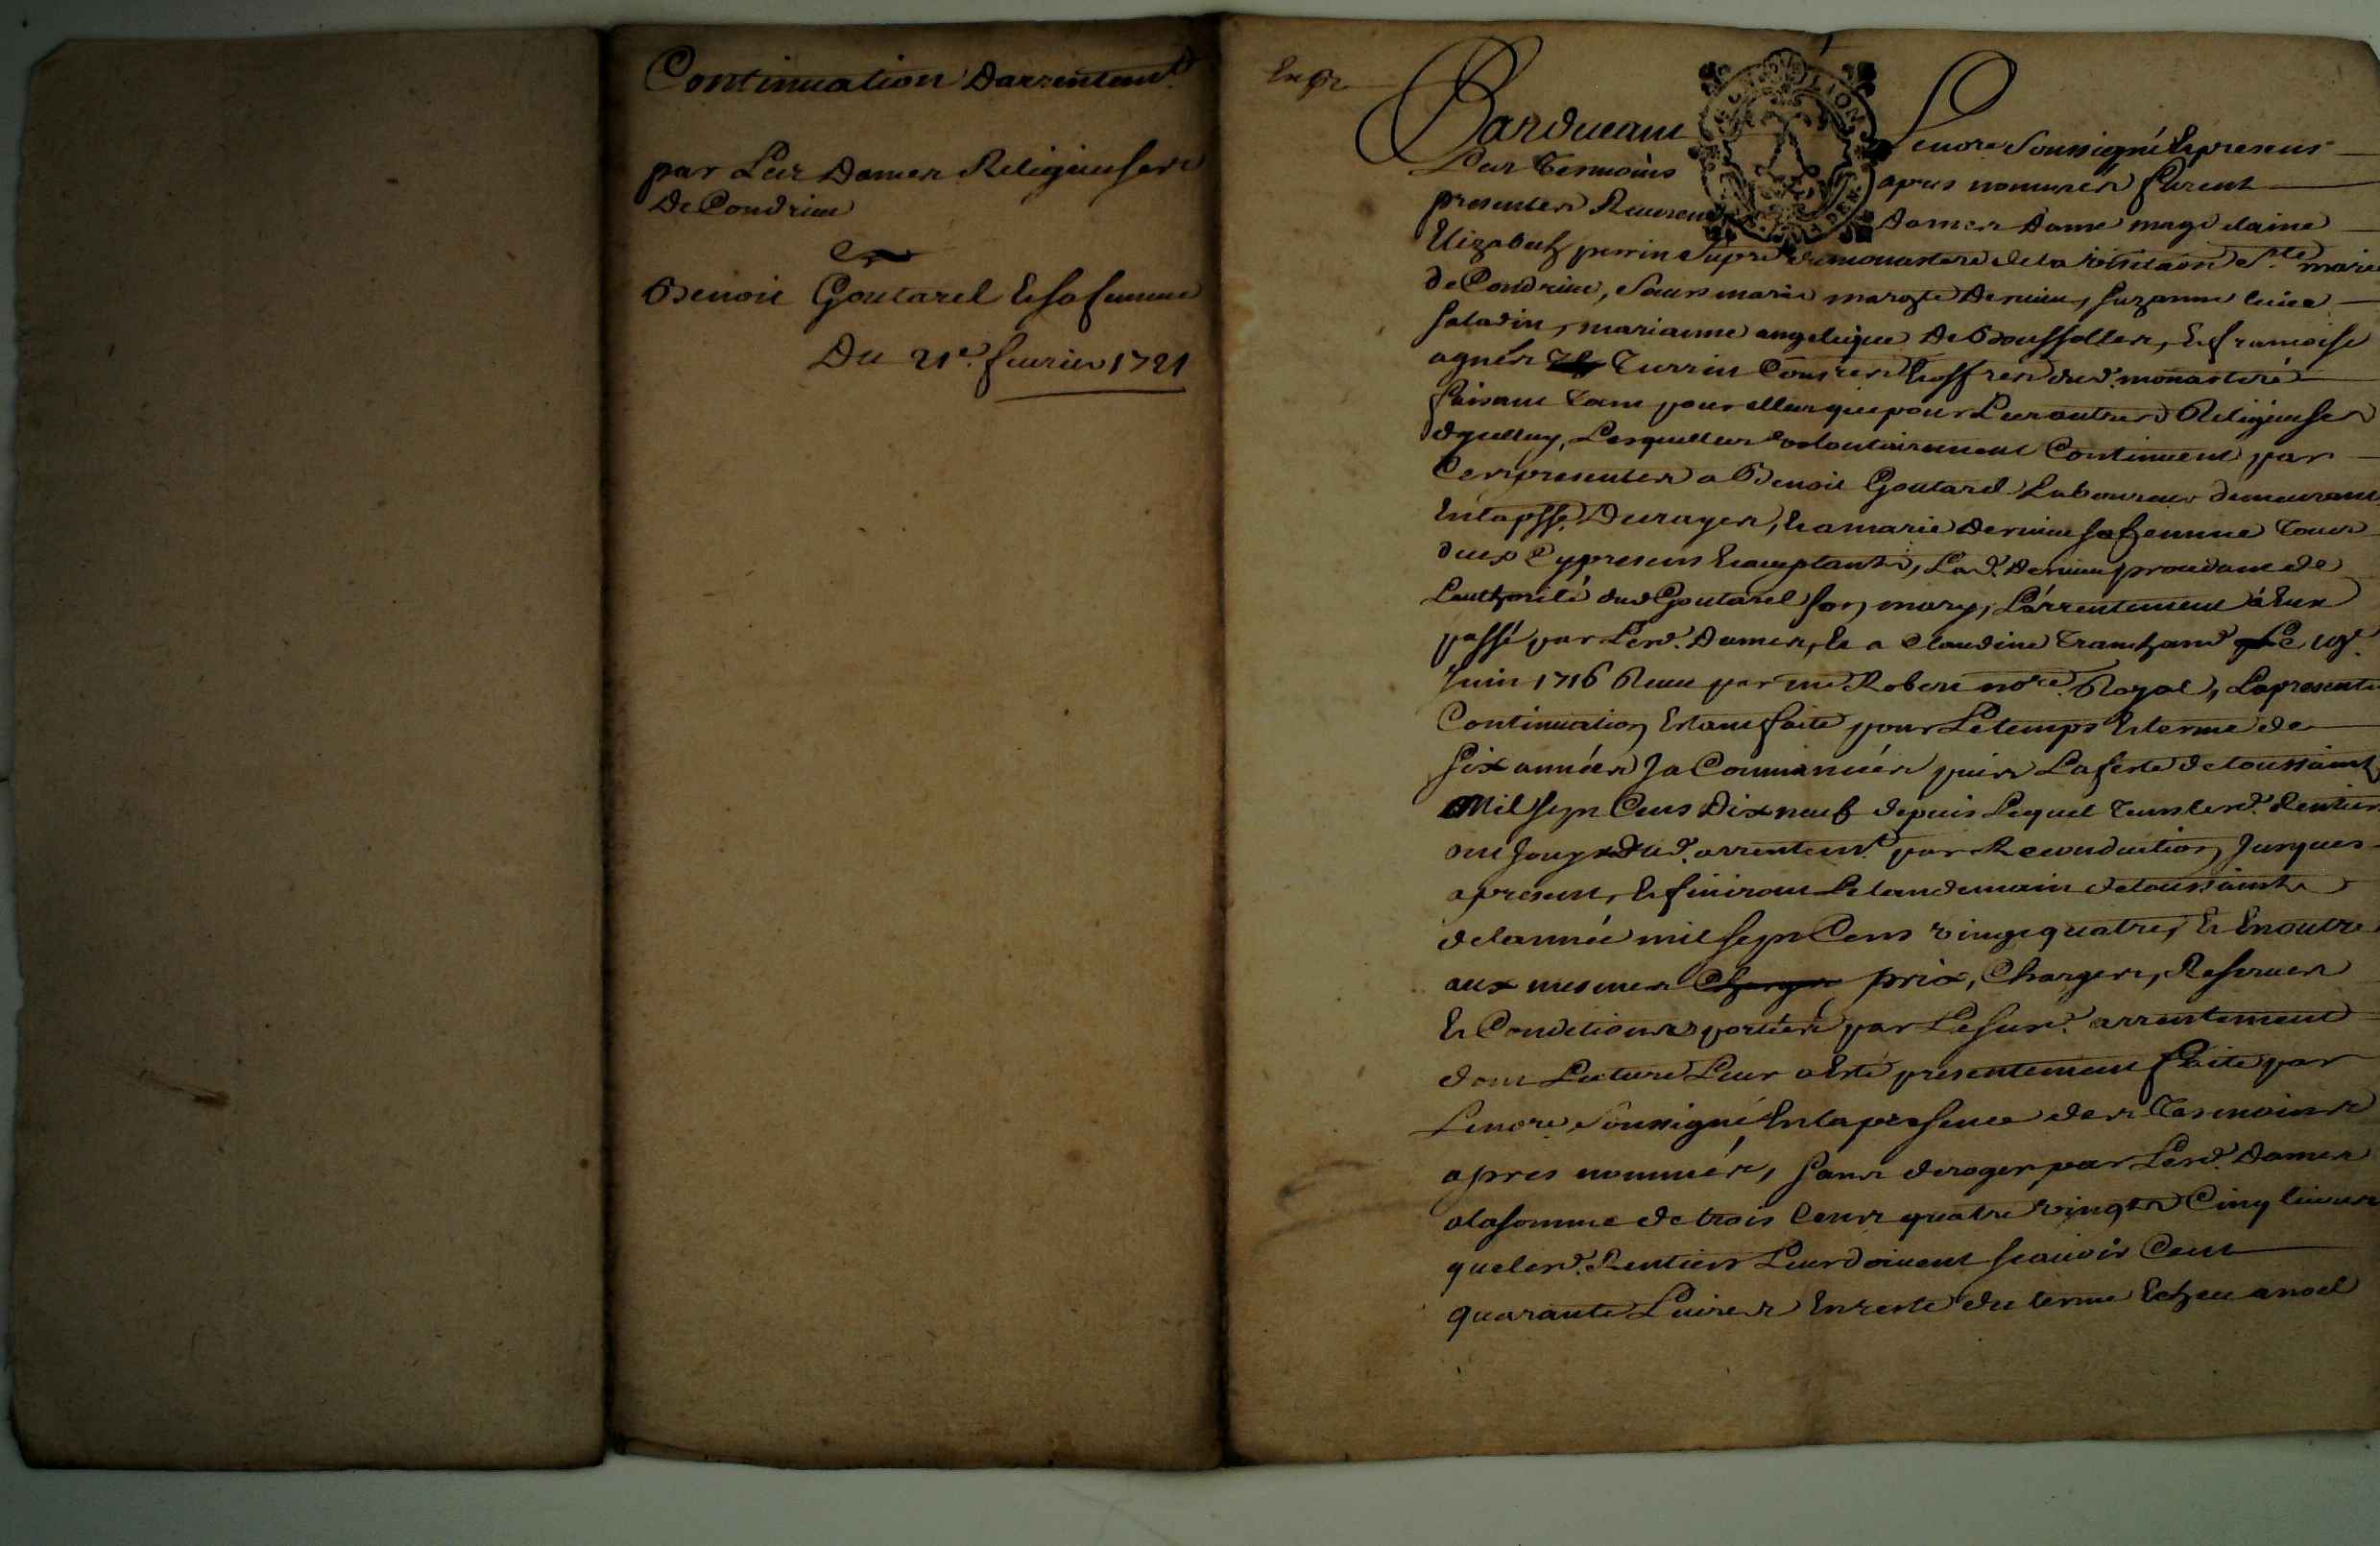 Continuation Darrentemt.
par Les Dames Religieuses
De Condrieu
Benoit Goutarel & sa femme
Du 21e. feurier 1721
Pardeuant Le nore. Soussigné & presens
Les Tesmoins apres nommés furent
presentes Dames Dame magdelaine
Elizabeth perrin Supre. du monastere de la visitaon Ste. marie
de Condrieu, Sœurs marie margte Deruieu, Suzanne
Saladin, marianne angelique De Boussolles, & francoise
agnes Turrin Conseres & offres dud. monastere
faisant tant pour elles que pour Les autres Religieuses
dyceluy, Lesquelles volontairement Continuent par
Ces presentes a Benoit Goutarel Laboureur demeurant
En la psse. Des rayes, & a marie Deruieu sa femme Tous
deux Cy presens & acceptants, Lad. Deruieu procedant de
Lauthorité dud Goutarel son mary, L'arrentement à Eux
passé par Lesd. Dames, & a Claudine Tranchand Le
Juin 1716 Receu par me Robert nore. Royal, La presente
Continuation Estant faite pour Le temps & terme de
Six années Ja Commancées puis La feste de toussaint
Mil sept Cens Dix neuf depuis Lequel Temps lesd. Rentiers
ont Jouy dud. arrentemt. par Reconduction Jusques
a present, & finiront Le landemain de toussaints
de lannée mil sept Cens vingt quatre, & En outre
aux mesmes Charges prix, Charges, Reserues
& Conditions portées par Le susd. arrentement
dont Lecture Leur a Esté presentement faite par
Le nore. Soussigné En la presence des Tesmoins
apres nommés, sans deroger par Lesd. Dames
a la somme de trois Cens quatre vingts Cinq liures
que lesd. Rentiers Leur doiuent scauoir Cent
quarante Liures En reste du terme Echeu a noel